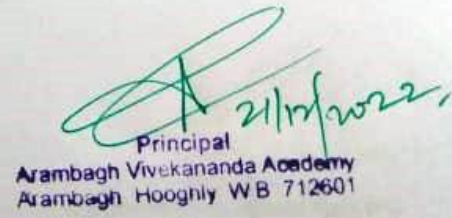 21/12/2022,
Principal
Arambagh Vivekananda Academy
Arambagh Hooghly W B 712601